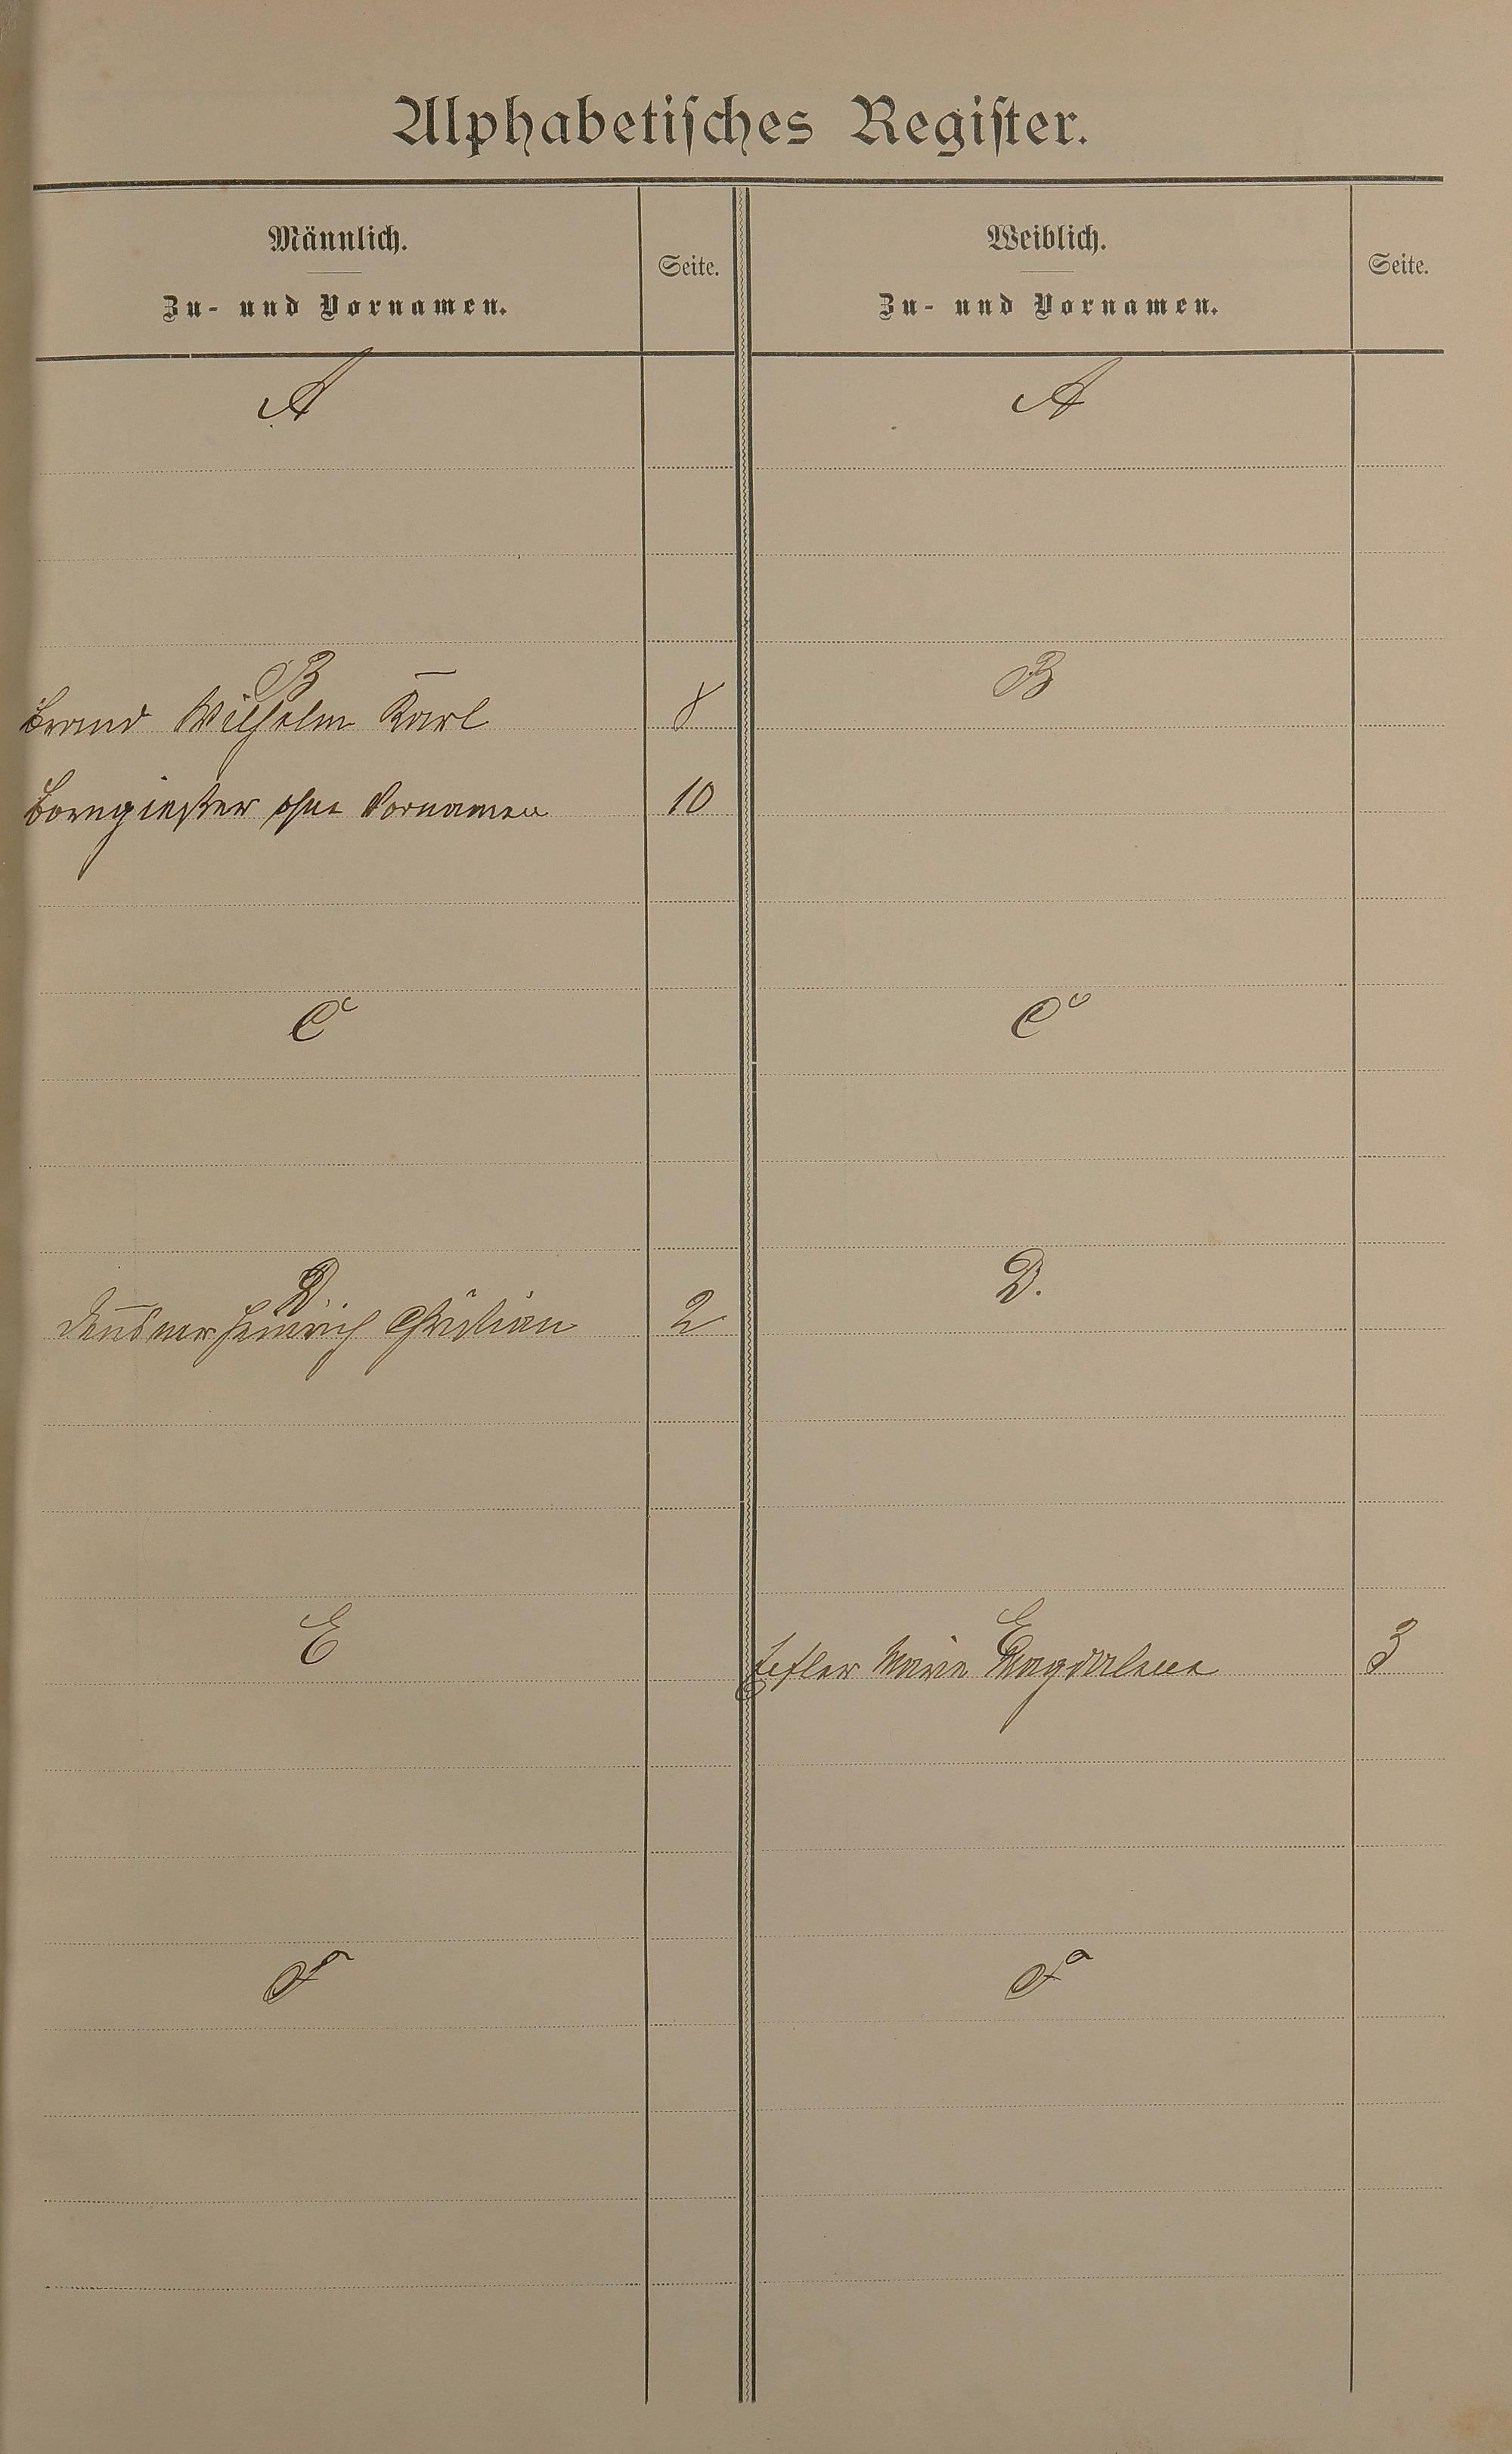 Alphabetisches Register.
Männlich.
Zu- und Vornamen.
Seite.
Weiblich.
Zu- und Vornamen.
Seite.
A
A
B
B
Brand Wilhelm Karl 8
Borngießer ohne Vornamen 10
C
C
D.
D.
Heinrich Christian 2
E
E
Marie Magdalena 3
F
F